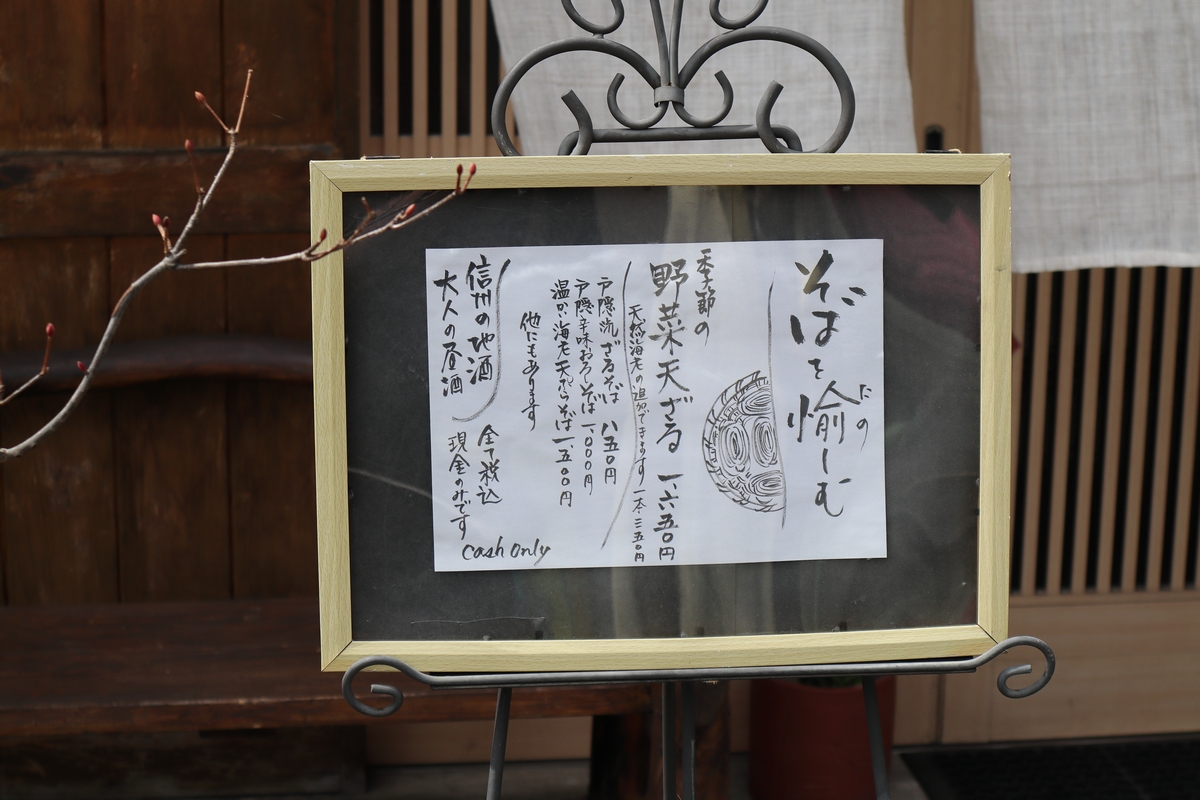 そばを愉しむ
たの
季節の
野菜天ざる 一、六五〇円
天然海老の追加できます 一本 三五〇円
戸隠流ざるそば 八五〇円
戸隠辛味おろしそば 一、〇〇〇円
温かい海老天ぷらそば 一、五〇〇円
他にもあります
信州の地酒
大人の昼酒
全て税込
現金のみです
cash only